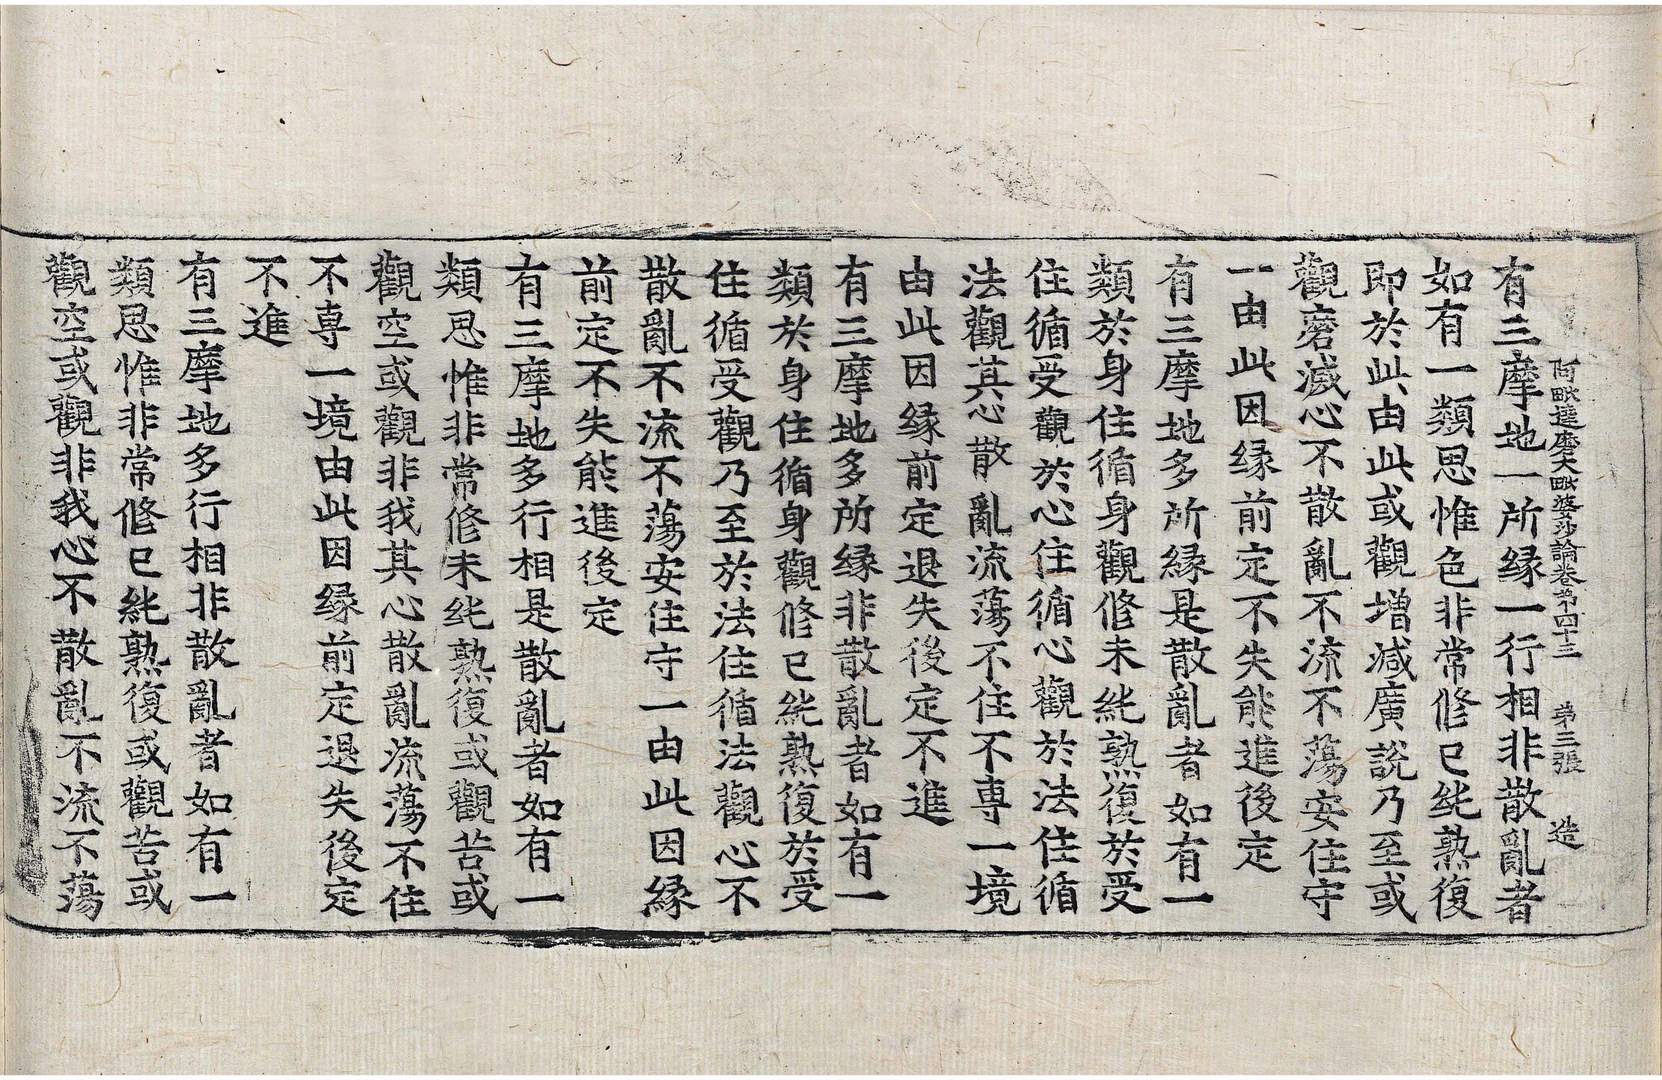 阿毗達磨大毗婆沙論卷第四十三 第三張 造
有三摩地一所緣一行相非散亂者
如有一類思惟色非常修已純熟復
即於此由此或觀增減廣說乃至或
觀磨滅心不散亂不流不蕩安住守
一由此因緣前定不失能進後定
有三摩地多所緣是散亂者如有一
類於身住循身觀修未純熟復於受
住循受觀於心住循心觀於法住循
法觀其心散亂流蕩不住不專一境
由此因緣前定退失後定不進
有三摩地多所緣非散亂者如有一
類於身住循身觀修已純熟復於受
住循受觀乃至於法住循法觀心不
散亂不流不蕩安住守一由此因緣
前定不失能進後定
有三摩地多行相是散亂者如有一
類思惟非常修未純熟復或觀苦或
觀空或觀非我其心散亂流蕩不住
不專一境由此因緣前定退失後定
不進
有三摩地多行相非散亂者如有一
類思惟非常修已純熟復或觀苦或
觀空或觀非我心不散亂不流不蕩